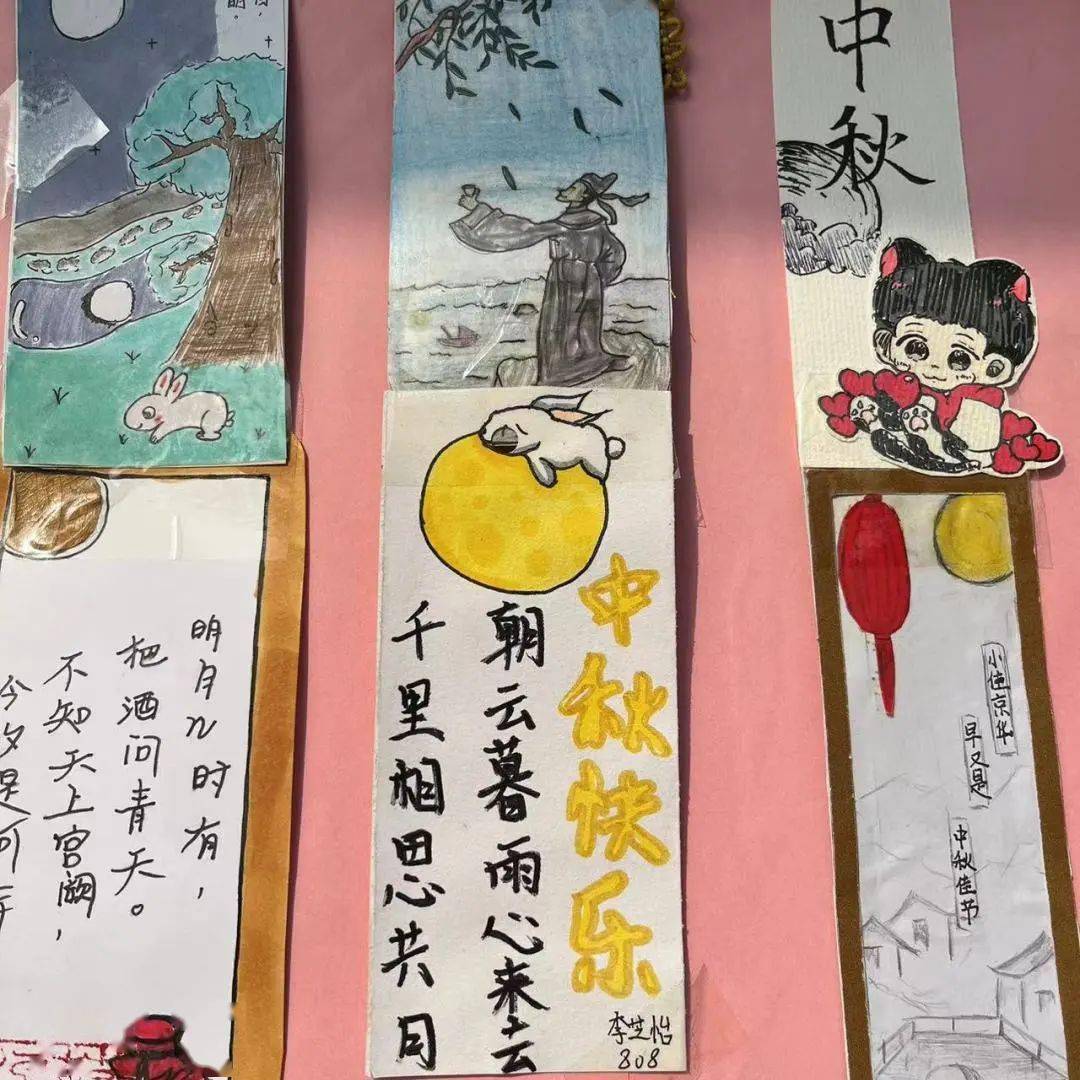 明。
明月几时有，
把酒问青天。
不知天上宫阙，
今夕是何年
中秋快乐
朝云暮雨心来去
千里相思共月
李芝怡
808
中秋
小住京华
早又是
中秋佳节